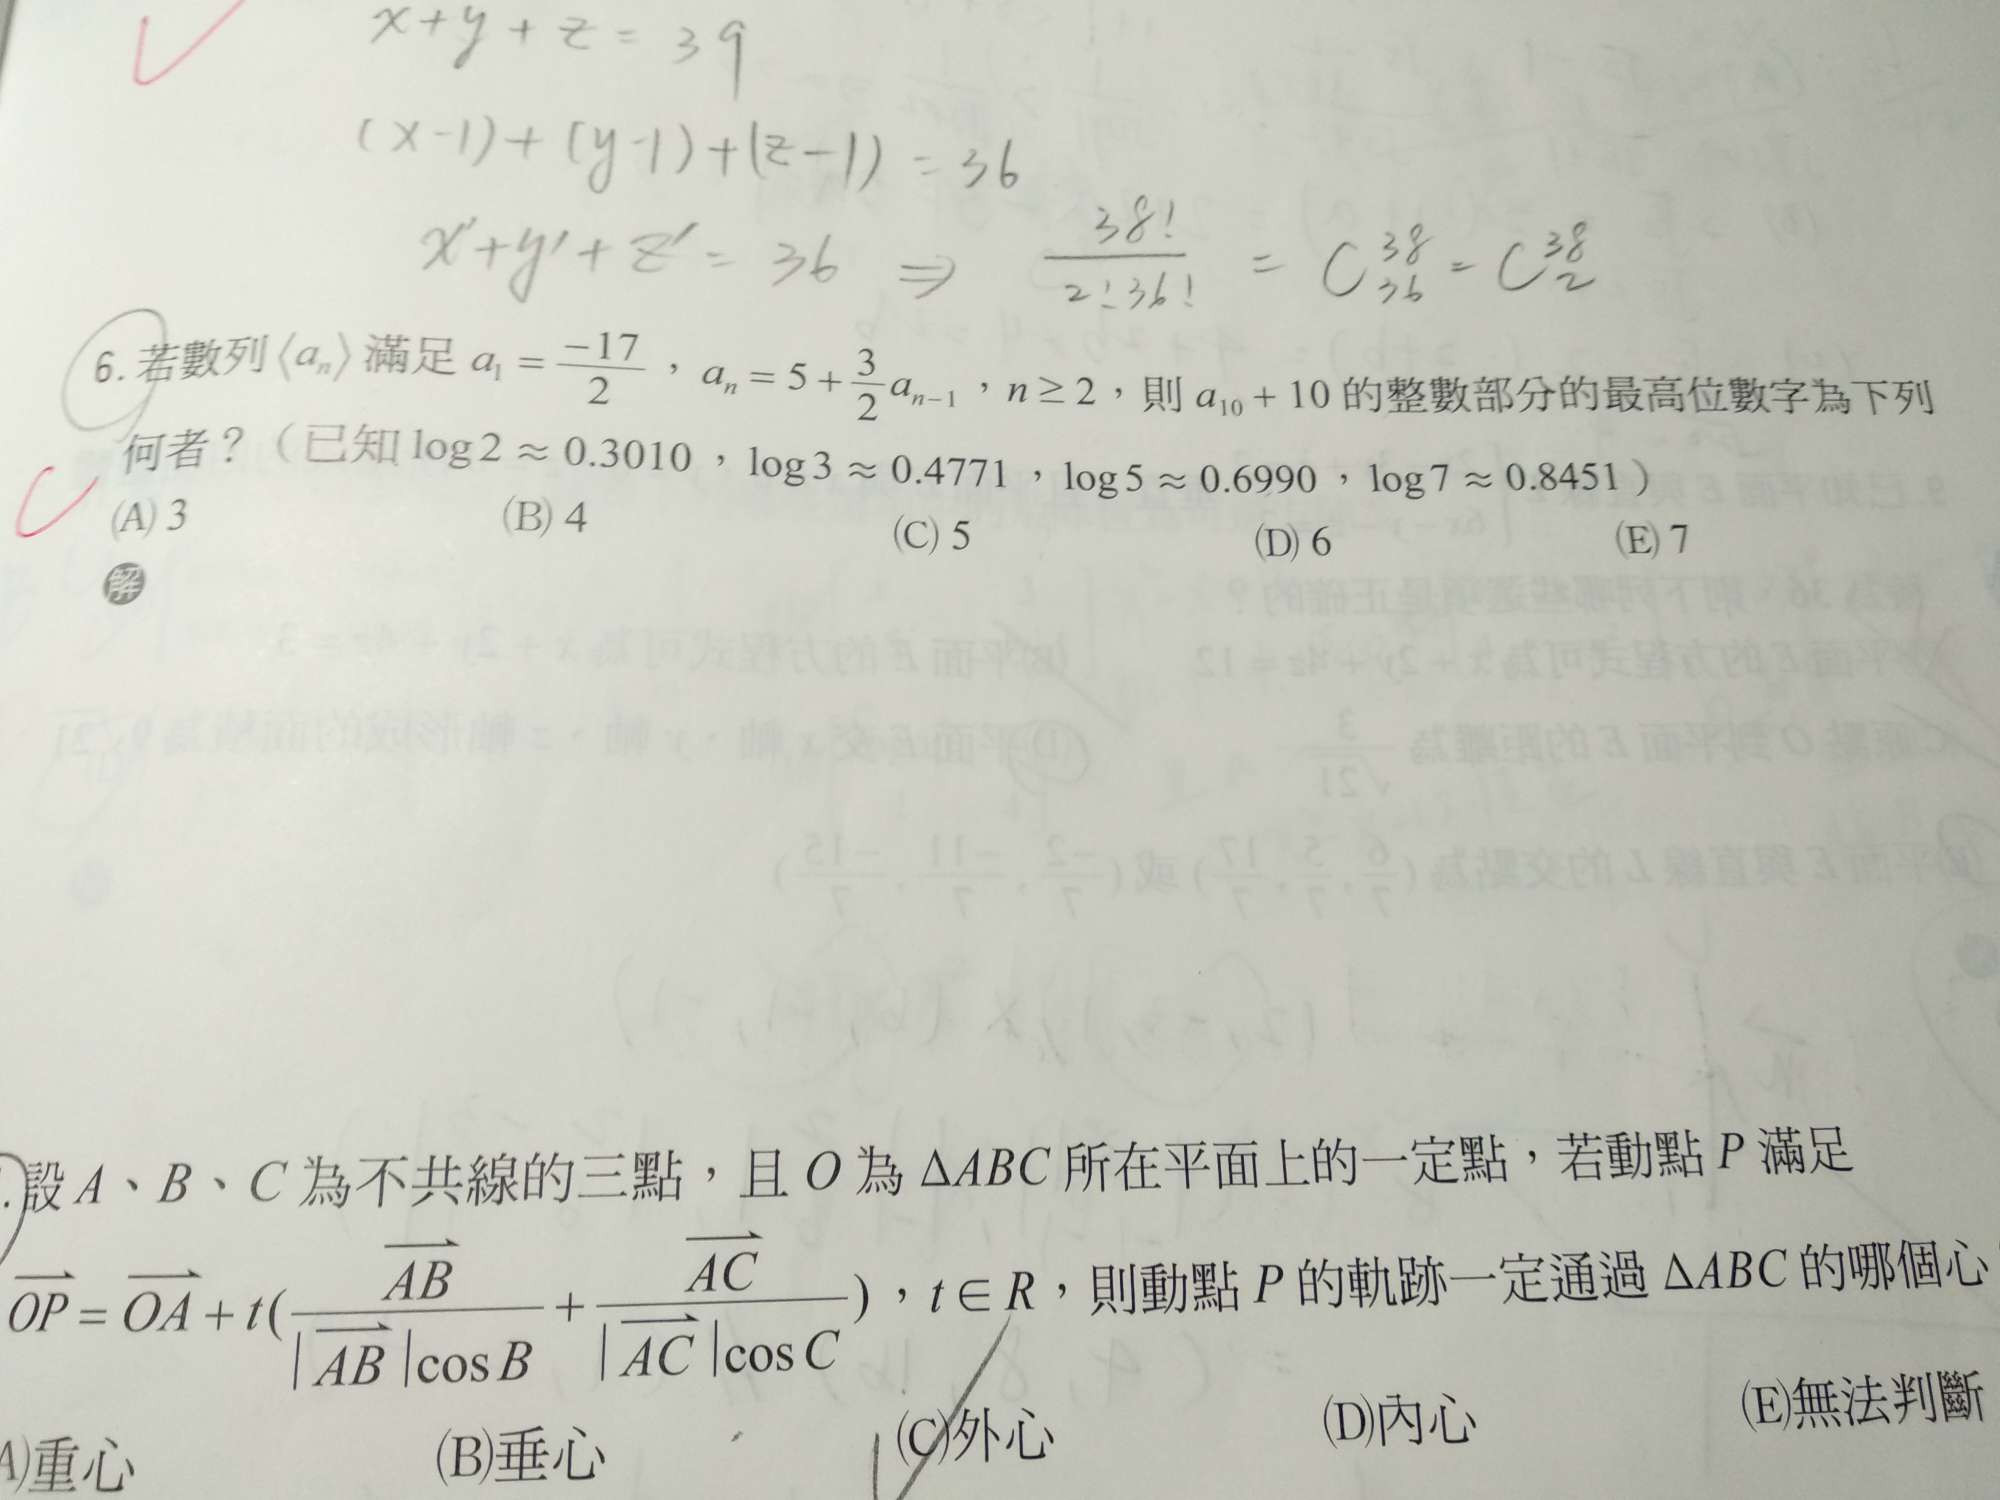 x+y+z=39
(x-1)+(y-1)+(z-1)=36
x'+y'+z'=36 ⇒ 38!/2!36! = C³⁸₃₆ = C³⁸₂
6. 若數列⟨aₙ⟩滿足 a₁ = -17/2，aₙ = 5 + 3/2 aₙ₋₁，n ≥ 2，則 a₁₀ + 10 的整數部分的最高位數字為下列
何者？（已知 log 2 ≈ 0.3010，log 3 ≈ 0.4771，log 5 ≈ 0.6990，log 7 ≈ 0.8451）
(A) 3 (B) 4 (C) 5 (D) 6 (E) 7
解
.設 A、B、C 為不共線的三點，且 O 為 ΔABC 所在平面上的一定點，若動點 P 滿足
OP = OA + t(AB/|AB|cos B + AC/|AC|cos C)，t ∈ R，則動點 P 的軌跡一定通過 ΔABC 的哪個心
A)重心 (B)垂心 (C)外心 (D)內心 (E)無法判斷